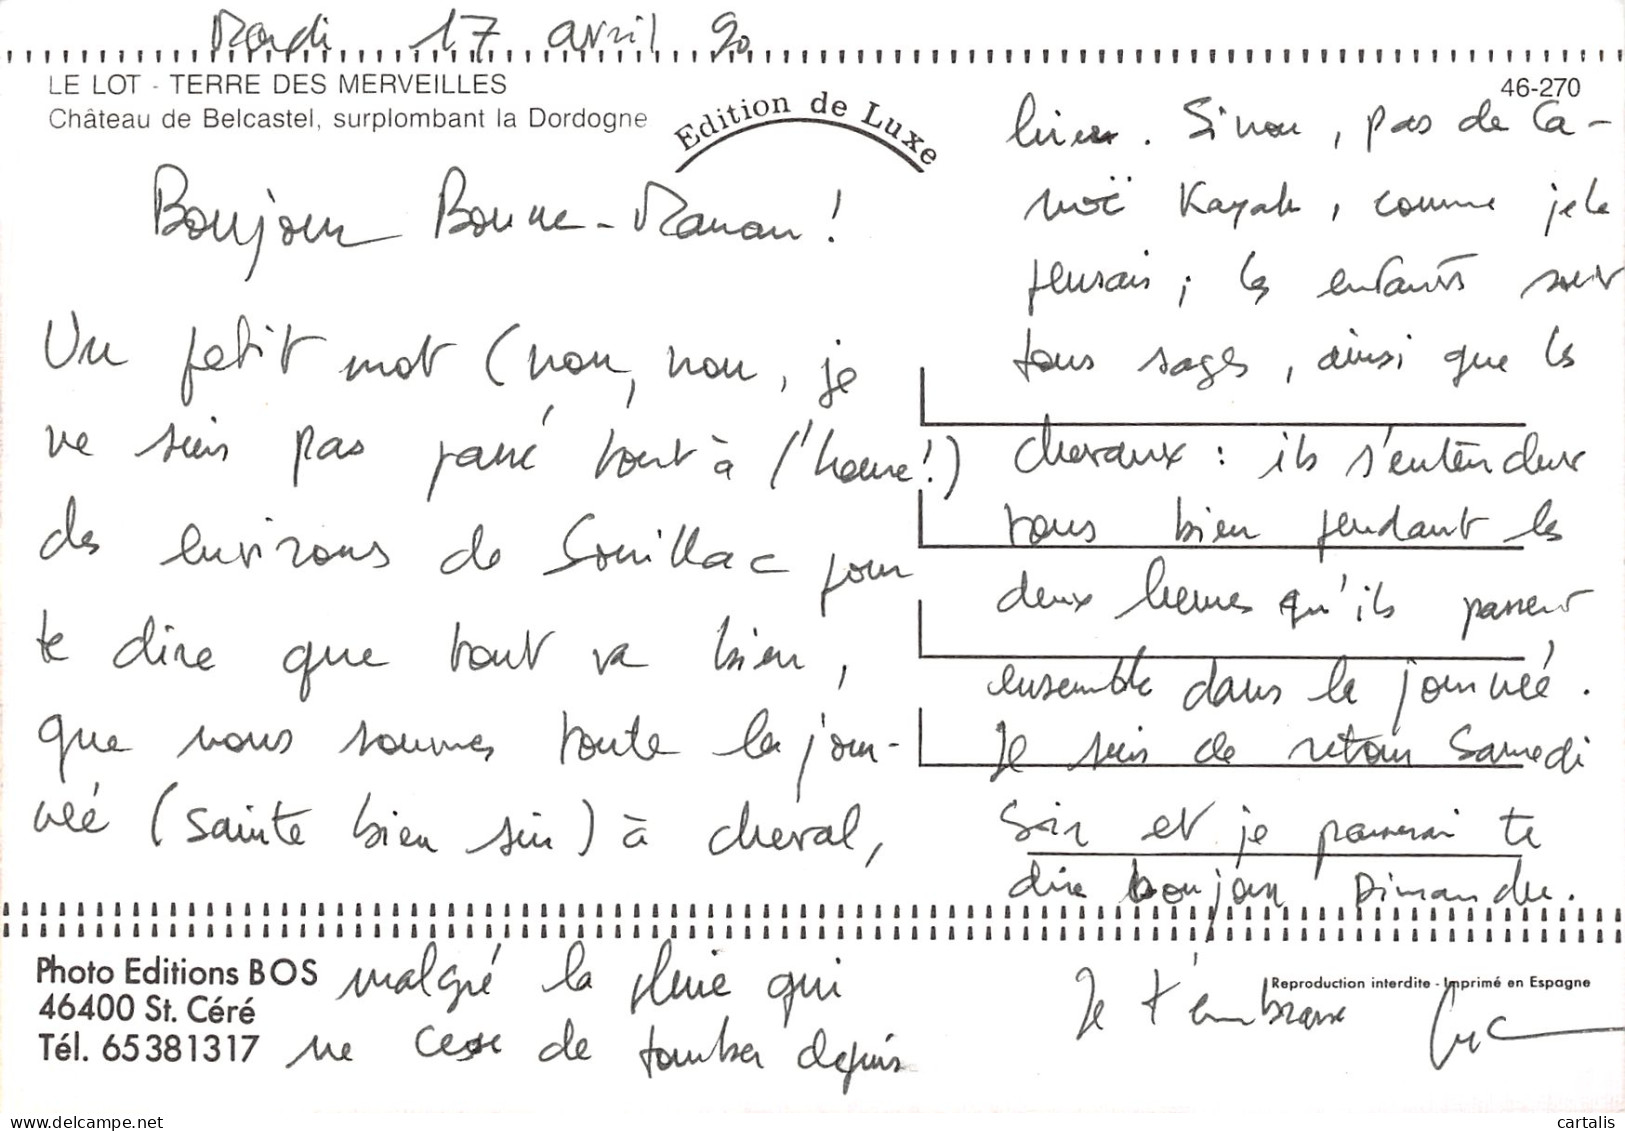 Mardi 17 avril 90
LE LOT - TERRE DES MERVEILLES
Château de Belcastel, surplombant la Dordogne
Edition de Luxe
46-270
Bonjour Bonne-Maman !
Un petit mot (non, non, je
ne suis pas passé tout à l'heure !)
des environs de Souillac pour
te dire que tout va bien,
que nous sommes toute la jour-
née (sainte bien sûr) à cheval,
malgré la pluie qui
ne cesse de tomber depuis
hier. Sinon, pas de Ca-
noë Kayak, comme je le
pensais ; les enfants sont
tous sages, ainsi que les
chevaux : ils s'entendent
tous bien pendant les
deux heures qu'ils passent
ensemble dans la journéé.
Je suis de retour Samedi
Soir et je passerai te
dire bonjour Dimanche.
Je t'embrasse Luc
Photo Editions BOS
46400 St. Céré
Tél. 65381317
Reproduction interdite - Imprimé en Espagne
cartalis